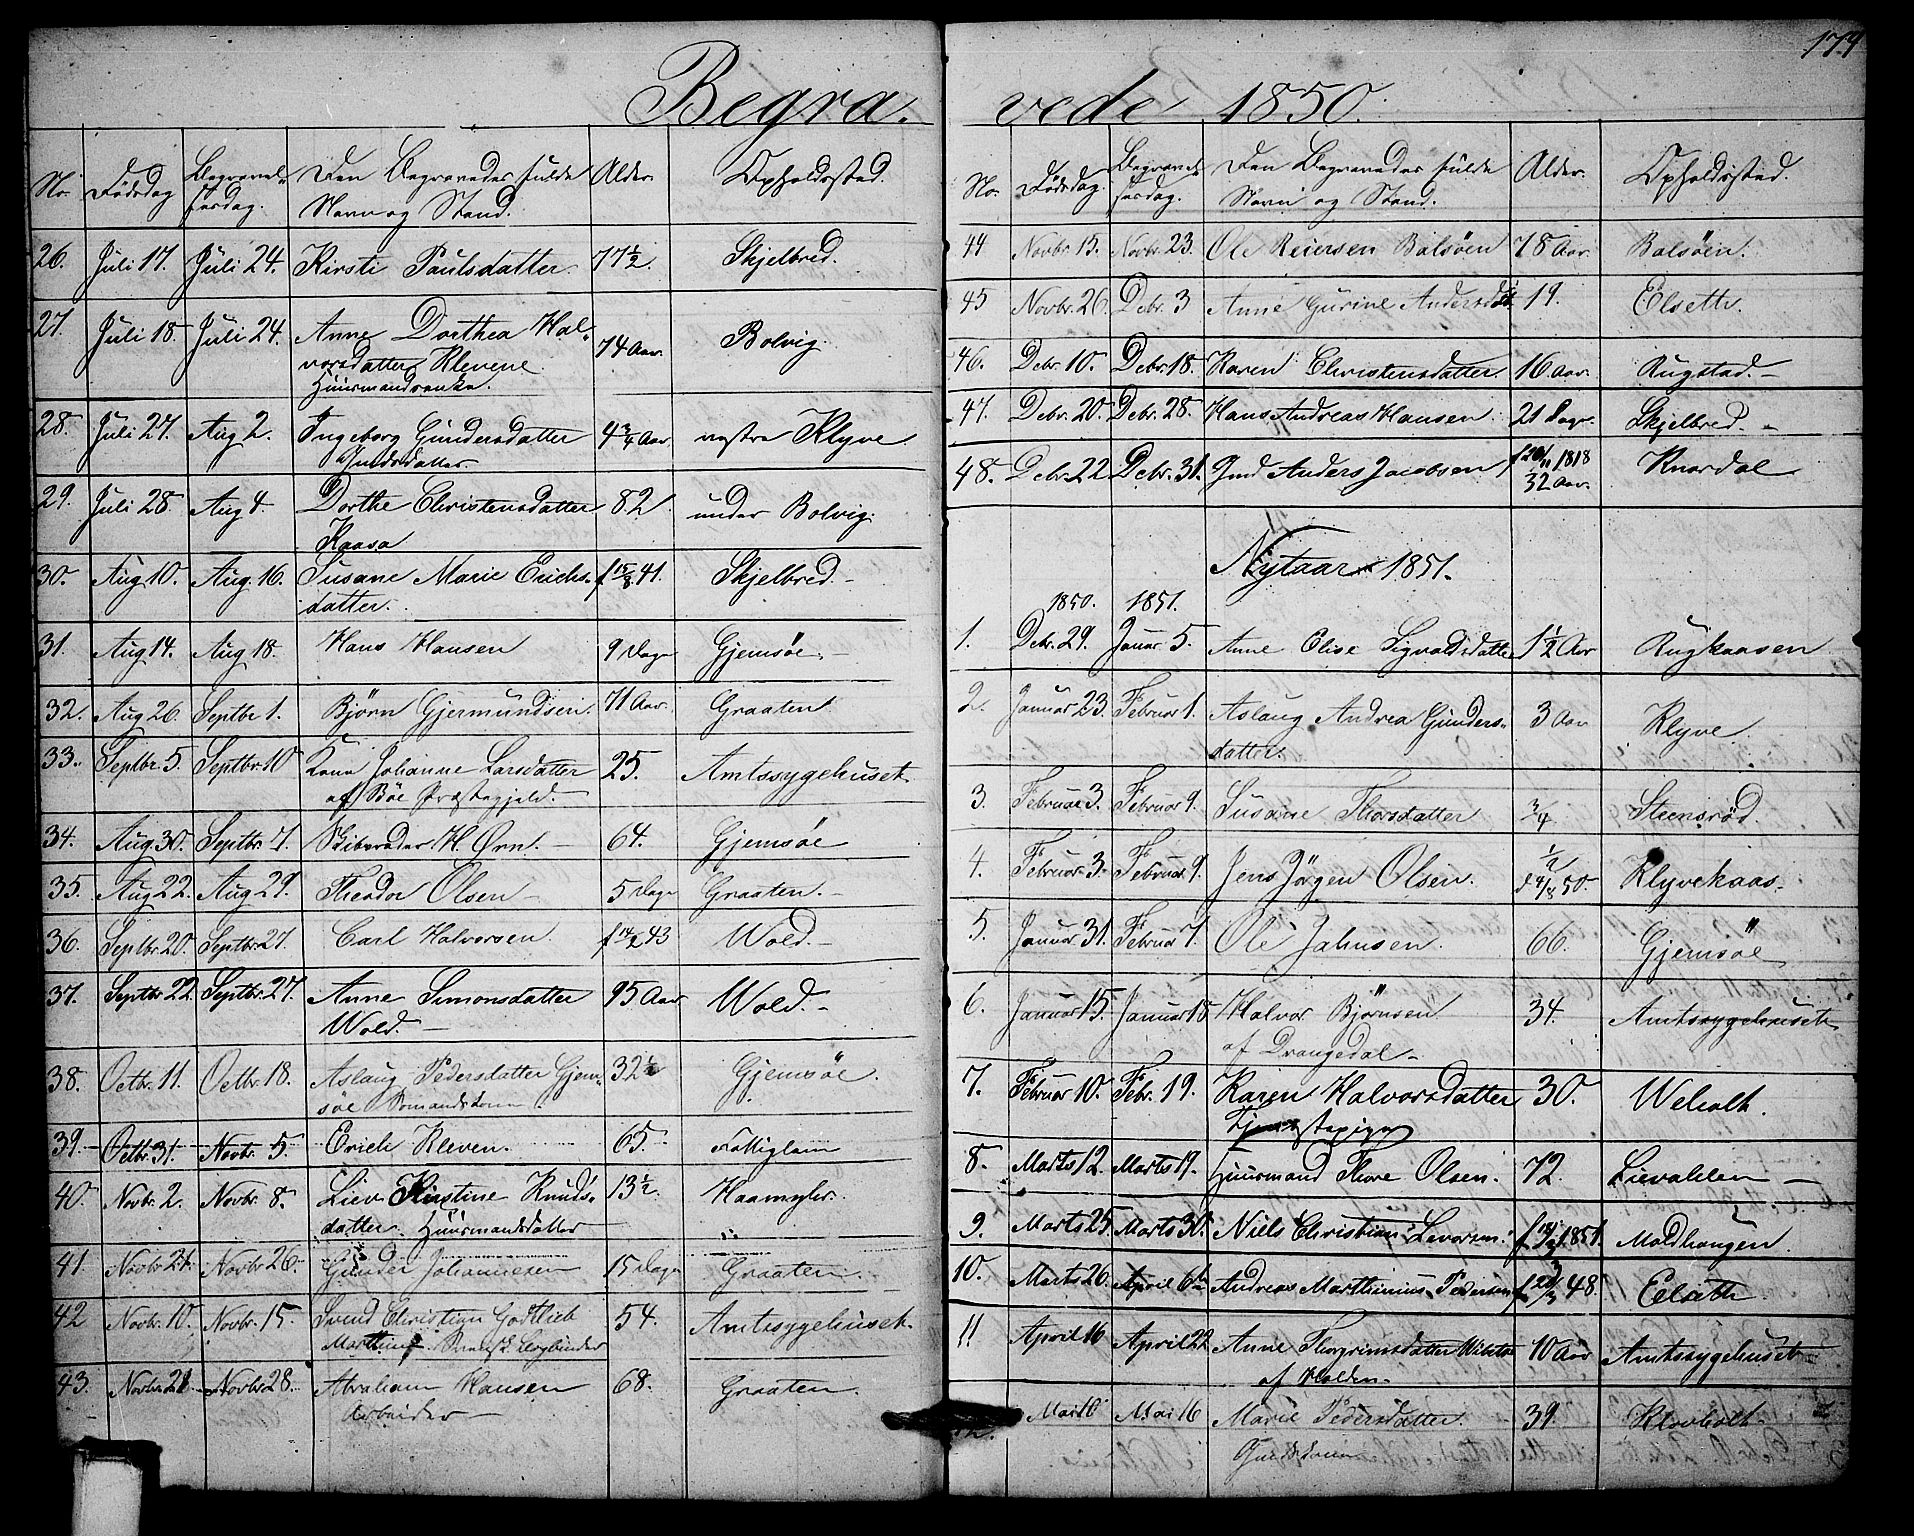 174
Begravede 1850.
No. Dödsdag Begravelsesdag. Den Begravedes fulde Navn og Stand. Alder. Opholdssted.
26. Juli 17. Juli 24. Kirsti Paulsdatter 77 1/2. Skjelbred.
27. Juli 18. Juli 24. Anne Dorthea Hal-
vorsdatter Klevene 74 Aar. Bolvig.
Huusmandsenke.
28. Juli 27. Aug 2. Ingeborg Gundersdatter 4 3/4 Aar. vestra Klyve
29. Juli 28. Aug 4. Dorthe Christensdatter 82. under Bolvig.
Kaasa
30. Aug 10. Aug. 16. Susane Marie Erichs- f 15/8 41. Skjelbred -
datter.
31. Aug 14. Aug 18. Hans Hansen 9 Dage Gjemsøe -
32. Aug 26. Septbr 1. Bjørn Gjermundsen. 71 Aar. Graaten
33. Septbr. 5. Septbr. 10 Kone Johanne Larsdatter 25. Amtssygehuset
af Bøe Præstegjeld.
34. Aug. 30. Septbr. 7. Skibsreder H. Ørn - 64. Gjemsøe
35. Aug 22. Aug 29. Theodor Olsen - 5 Dage Graaten. -
36. Septbr. 20. Septbr. 27. Carl Halvorsen f 14/2 43 Wold. -
37. Septbr. 22. Septbr. 27. Anne Simonsdatter 95 Aar Wold. -
Wold. -
38. Octbr. 11. Octbr. 18. Aslaug Pedersdatter Gjem- 32 1/2 Gjemsøe.
søe
39. Octbr. 31. Novbr. 5. Erich Kleven. 65. Fattiglem
40. Novbr. 2. Novbr. 8. Liev Kirstine Knuds- 13 1/2.
datter. Huusmandsdatter
41. Novbr. 21. Novbr. 26. Gunder Johannesen 15 Dage Graaten. -
42 Novbr. 10. Novbr. 15. Svend Christian Gotlieb 54. Amtssygehuset.
43. Novbr. 21. Novbr. 28. Abraham Hansen 68. Graaten.
Arbeider -
No. Dödsdag. Begravelsesdag. Den Begravedes fulde Navn og Stand. Alder. Opholdssted.
44 Novbr. 15. Novbr. 23. Ole Reiersen Balsöen 78 Aar. Balsöen.
45 Novbr. 26. Debr. 3 Anne Gurine Andersdtr. 19. Elseth.
46. Debr. 10. Debr. 18. Karen Christensdatter. 16 Aar. Rugstad. -
47. Debr. 20. Debr. 28. Hans Andreas Hansen 21 Dage. Skjelbred. -
48. Debr. 22 Debr. 31. Gmd Anders Jacobsen f 20/11 1818
32 Aar. Knardal
Nytaar 1851.
1850. 1851.
1. Debr. 29. Januar 5. Anne Elise Sigvaldsdatter 1 1/2 Aar Rugkaasen
2. Januar 23. Februar 1. Aslaug Andrea Gunders- 3 Aar Klyve.
datter.
3. Februar 3. Februar 9. Susanne Thorsdatter 3/4 Steensrød.
4. Februar 3. Februar 9. Jens Jörgen Olsen. 1/2
f 4/8 50. Klyvekaas.
5. Januar 31. Februar 7. Ole Jahnsen. 66. Gjemsøe
6. Januar 15. Januar 18 Halvor Bjørnsen 34. Amtssygehuset
af Drangedal -
7. Februar 10. Febr. 19. Karen Halvorsdatter 30. Weholt.
Tjenestepige
8. Marts 12. Marts 19. Huusmand Thore Olsen. 72. Lievalden -
9. Marts 25 Marts 30. Niels Christian Levorsen. 1851. Moldhougen.
10. Marts 26. April 6te Andreas Marthinius Pedersen 48. Eelseth
11 April 16 April 22 Anne Thorgrimsdatter 10 Aar Amtssygehuset
af Holden.
12. Mai 10 Mai 16 Marie Pedersdatter. 39. Klovholt.